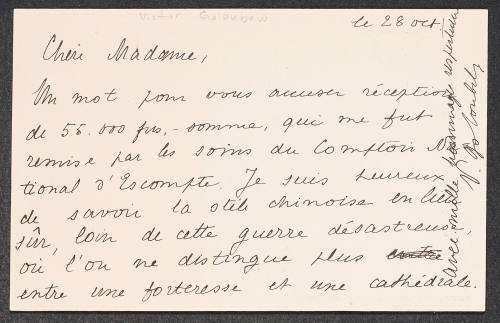 Victor Goloubew
le 28 oct.
Chère Madame,
Un mot pour vous accuser réception
de 55.000 frs, – somme, qui me fut
remise par les soins du Comptoir Na-
tional d'Escompte. Je suis heureux
de savoir la stèle chinoise en lieu
sûr, loin de cette guerre désastreuse,
où l'on ne distingue plus
entre une forteresse et une cathédrale.
avec mille hommages respectueux
V. Goloubew